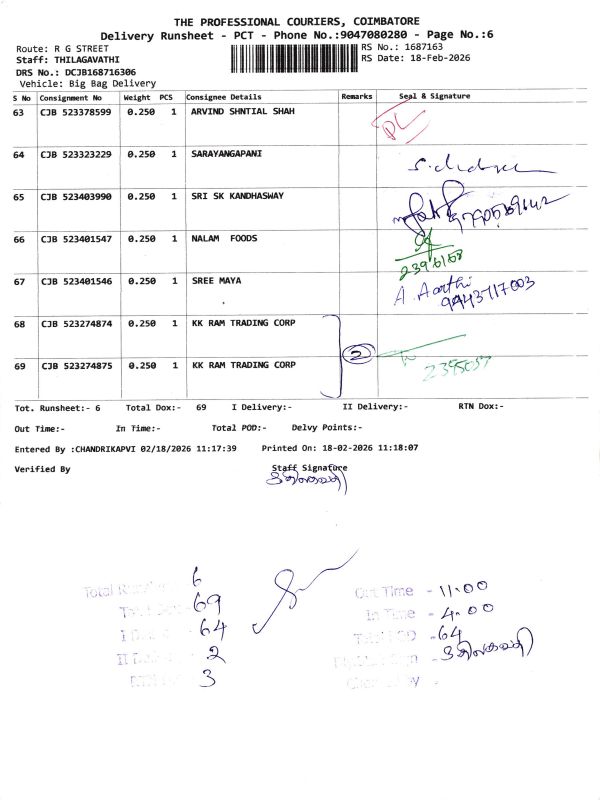 THE PROFESSIONAL COURIERS, COIMBATORE
Delivery Runsheet - PCT - Phone No.:9047080280 - Page No.:6
Route: R G STREET
RS No.: 1687163
Staff: THILAGAVATHI
RS Date: 18-Feb-2026
DRS No.: DCJB168716306
Vehicle: Big Bag Delivery
S No Consignment No Weight PCS Consignee Details Remarks Seal & Signature
63 CJB 523378599 0.250 1 ARVIND SHNTIAL SHAH DL
64 CJB 523323229 0.250 1 SARAYANGAPANI
65 CJB 523403990 0.250 1 SRI SK KANDHASWAY
66 CJB 523401547 0.250 1 NALAM FOODS
2396168
67 CJB 523401546 0.250 1 SREE MAYA A. Aarthi
9443717003
68 CJB 523274874 0.250 1 KK RAM TRADING CORP
2
69 CJB 523274875 0.250 1 KK RAM TRADING CORP 2395057
Tot. Runsheet:- 6 Total Dox:- 69 I Delivery:- II Delivery:- RTN Dox:-
Out Time:- In Time:- Total POD:- Delvy Points:-
Entered By :CHANDRIKAPVI 02/18/2026 11:17:39 Printed On: 18-02-2026 11:18:07
Verified By Staff Signature
திலகவதி
6
69
64
2
3
Out Time - 11.00
In Time - 4.00
- 64
- திலகவதி